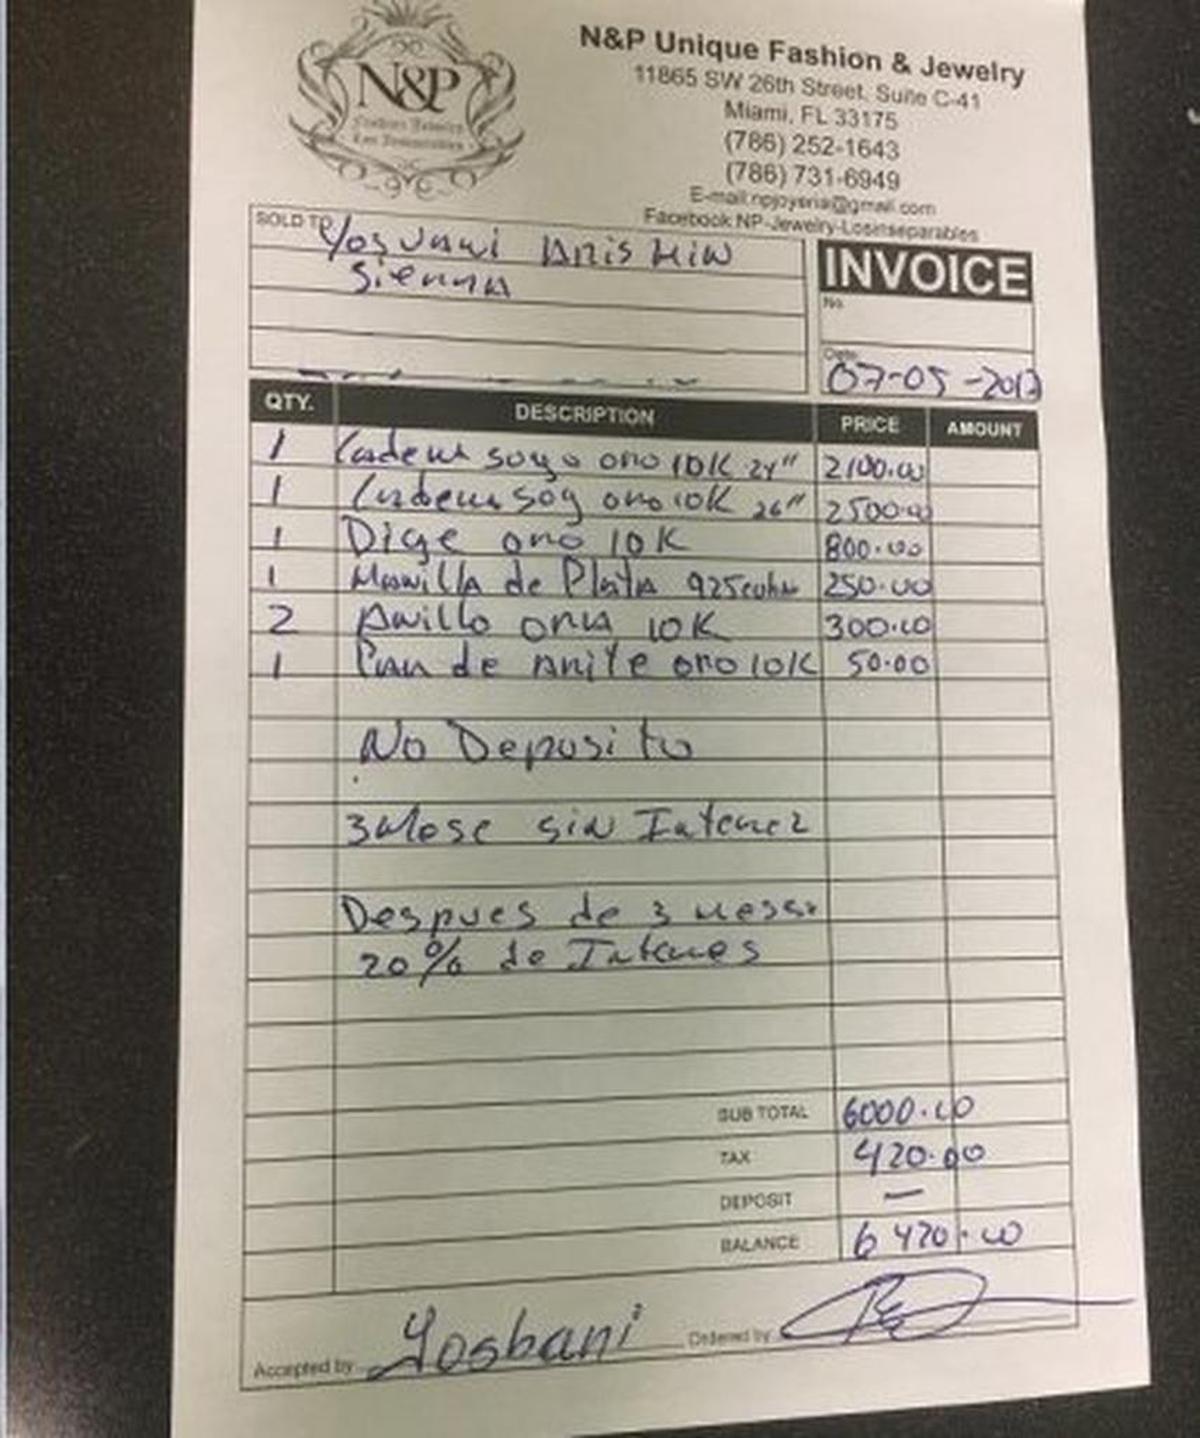 N&P
N&P Unique Fashion & Jewelry
11865 SW 26th Street, Suite C-41
Miami, FL 33175
(786) 252-1643
(786) 731-6949
E-mail:npjoyeria@gmail.com
Facebook NP-Jewelry-Losinseparables
SOLD TO
Sienna
INVOICE
No.
Date
07-05-2017
QTY. DESCRIPTION PRICE AMOUNT
1 oro 10K 24" 2100.00
1 oro 10K 26" 2500.00
1 Dige oro 10K 800.00
1 Manilla de Plata 925 250.00
2 Anillo 10K 300.00
1 Par de Arite oro 10K 50.00
No Deposito
3 Mese sin Interez
Despues de 3 meses
20% de Interes
SUB TOTAL 6000.00
TAX 420.00
DEPOSIT —
BALANCE 6420.00
Accepted by Yosbani Ordered by